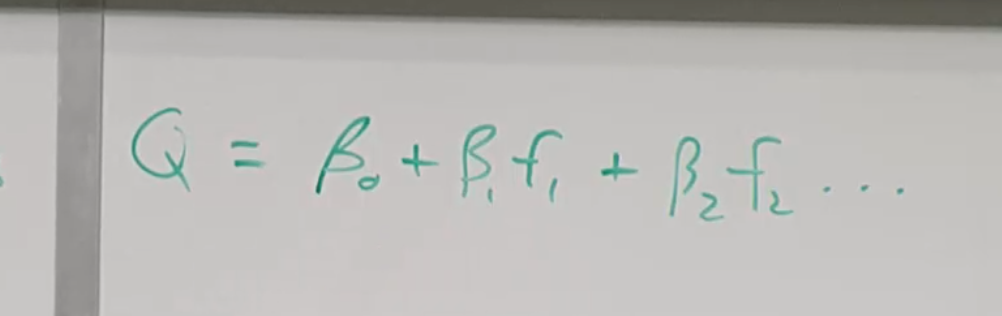 Q = β₀ + β₁f₁ + β₂f₂ ....